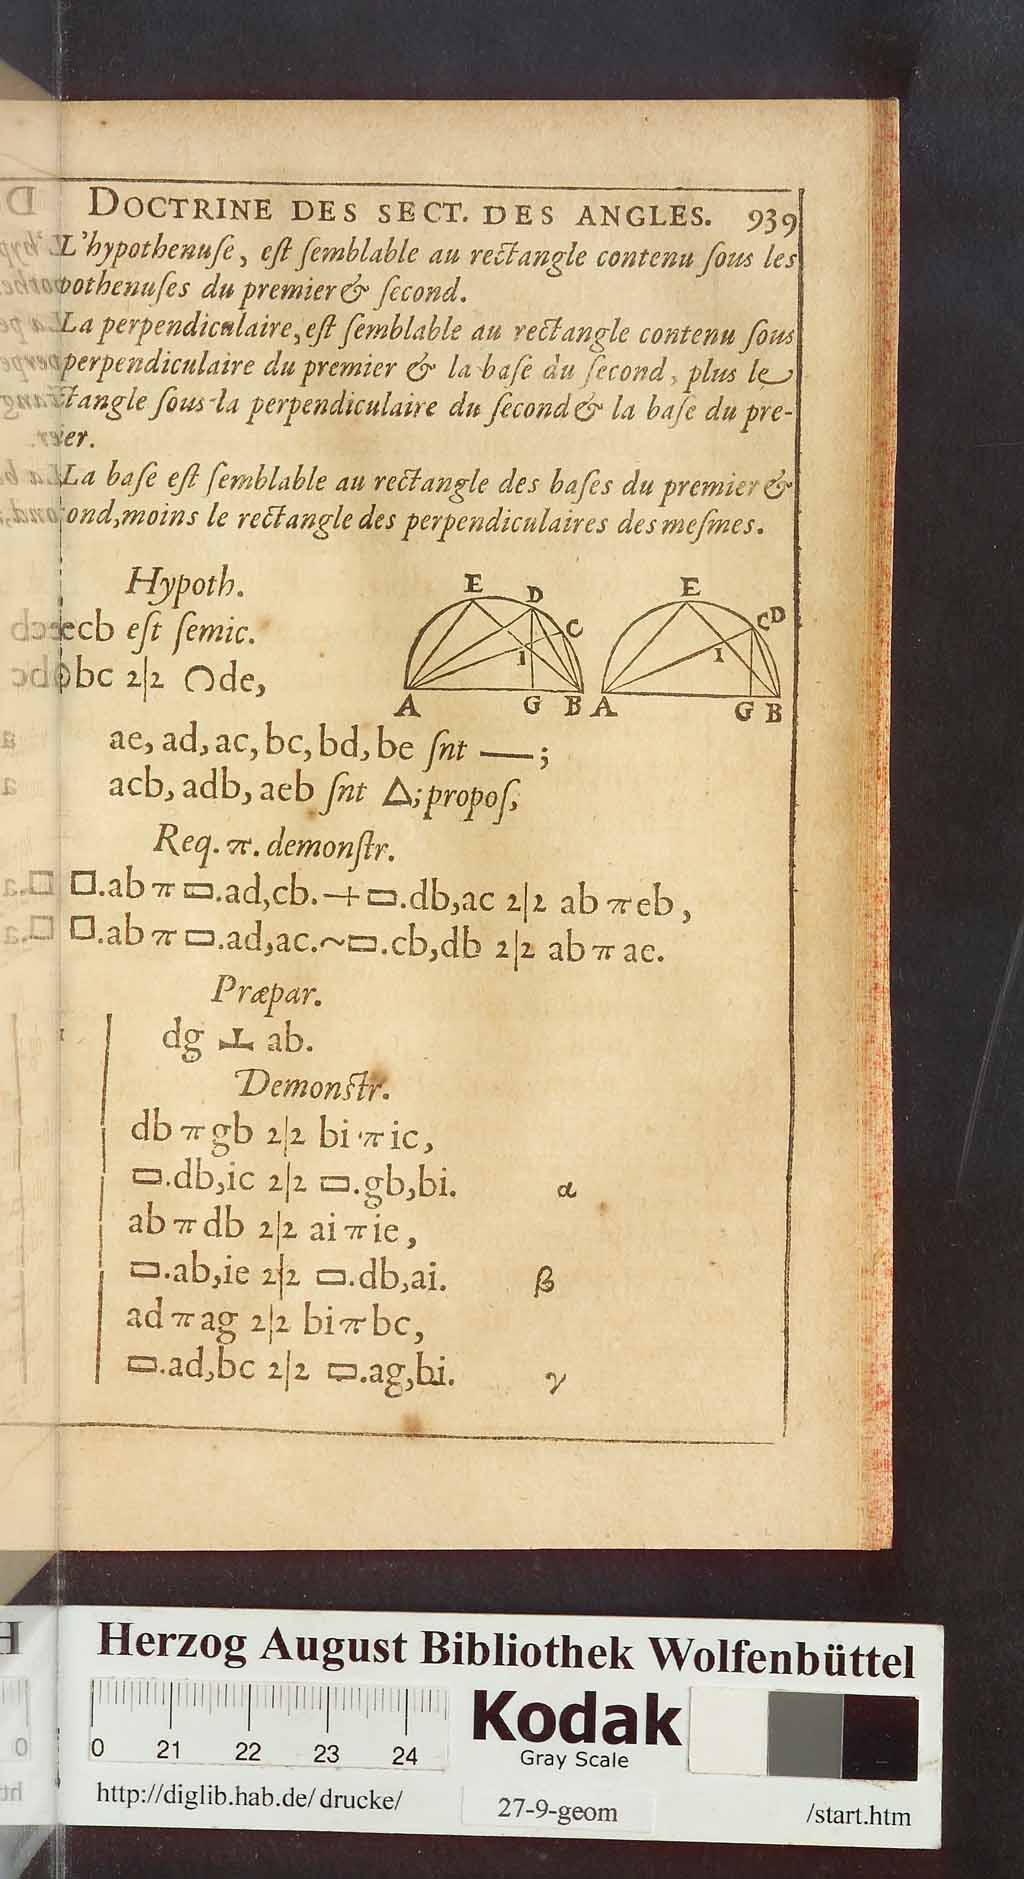 DOCTRINE DES SECT. DES ANGLES. 939
L'hypothenuſe, eſt ſemblable au rectangle contenu ſous les
pothenuſes du premier & ſecond.
La perpendiculaire, eſt ſemblable au rectangle contenu ſous
perpendiculaire du premier & la baſe du ſecond, plus le
ctangle ſous la perpendiculaire du ſecond & la baſe du pre-
er.
La baſe eſt ſemblable au rectangle des baſes du premier &
ond, moins le rectangle des perpendiculaires des meſmes.
Hypoth.
ecb eſt ſemic.
bc 2|2 ◠de,
E D C I A G B
E C D I A G B
ae, ad, ac, bc, bd, be ſnt —;
acb, adb, aeb ſnt △; propoſ,
Req. π. demonſtr.
□.ab π ▭.ad,cb. + ▭.db,ac 2|2 ab π eb,
□.ab π ▭.ad,ac. ~ ▭.cb,db 2|2 ab π ae.
Præpar.
dg ⊥ ab.
Demonſtr.
db π gb 2|2 bi π ic,
▭.db,ic 2|2 ▭.gb,bi. α
ab π db 2|2 ai π ie,
▭.ab,ie 2|2 ▭.db,ai. β
ad π ag 2|2 bi π bc,
▭.ad,bc 2|2 ▭.ag,bi. γ
Herzog August Bibliothek Wolfenbüttel
0 21 22 23 24
Kodak
Gray Scale
http://diglib.hab.de/drucke/ 27-9-geom /start.htm